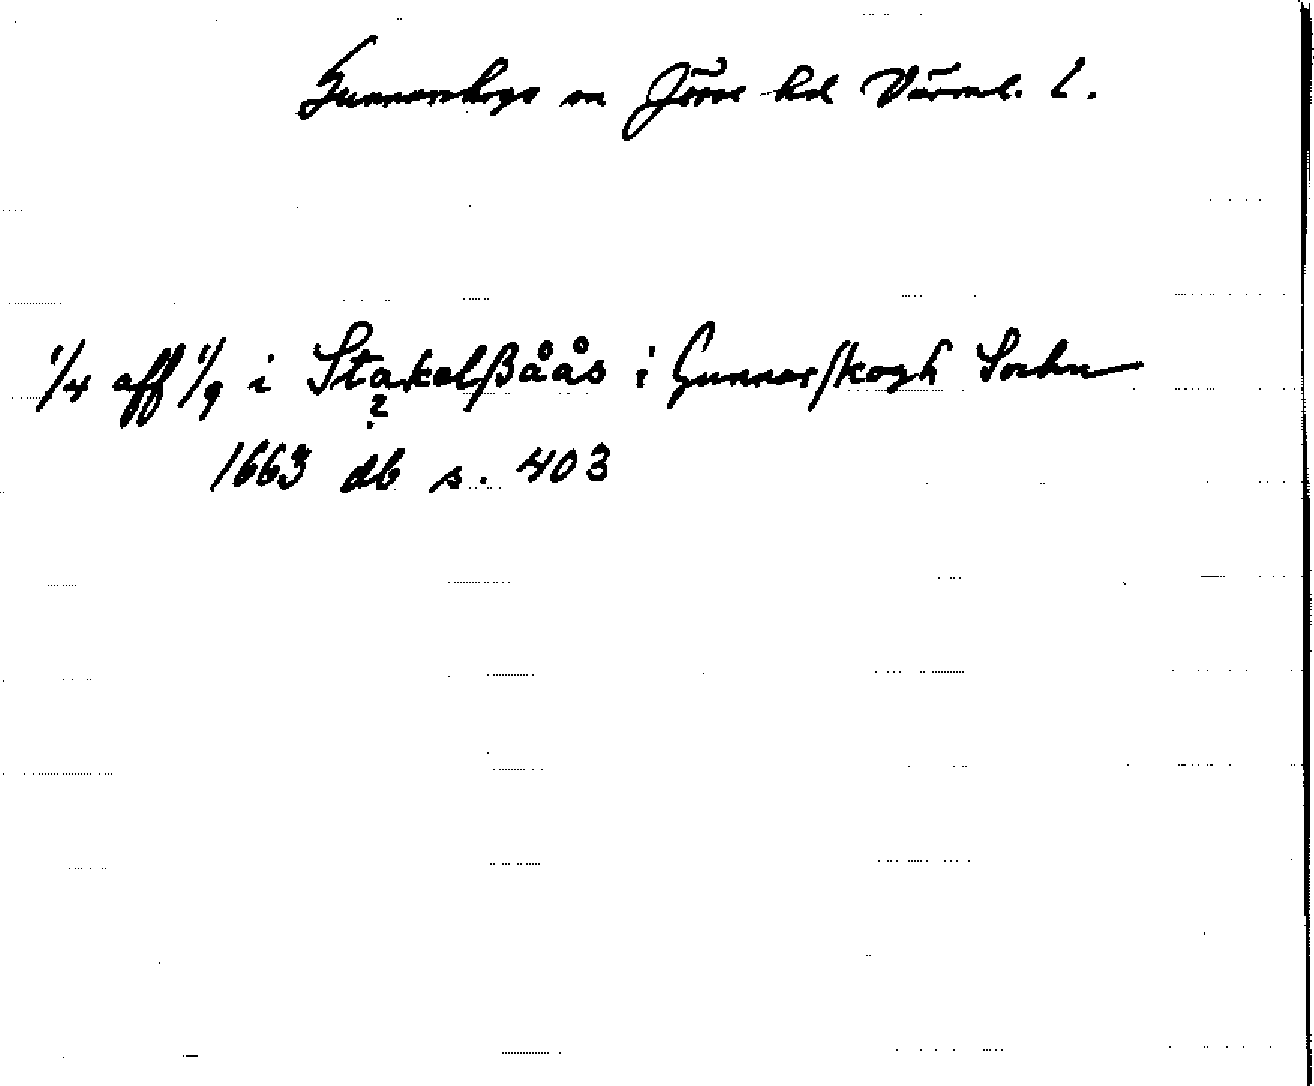 Gunnarskogs sn Jösse hd Värml. l.
1/4 aff 1/9 i Stakelßåås i Gunnarskogh Sochn
?
1663 db s. 403